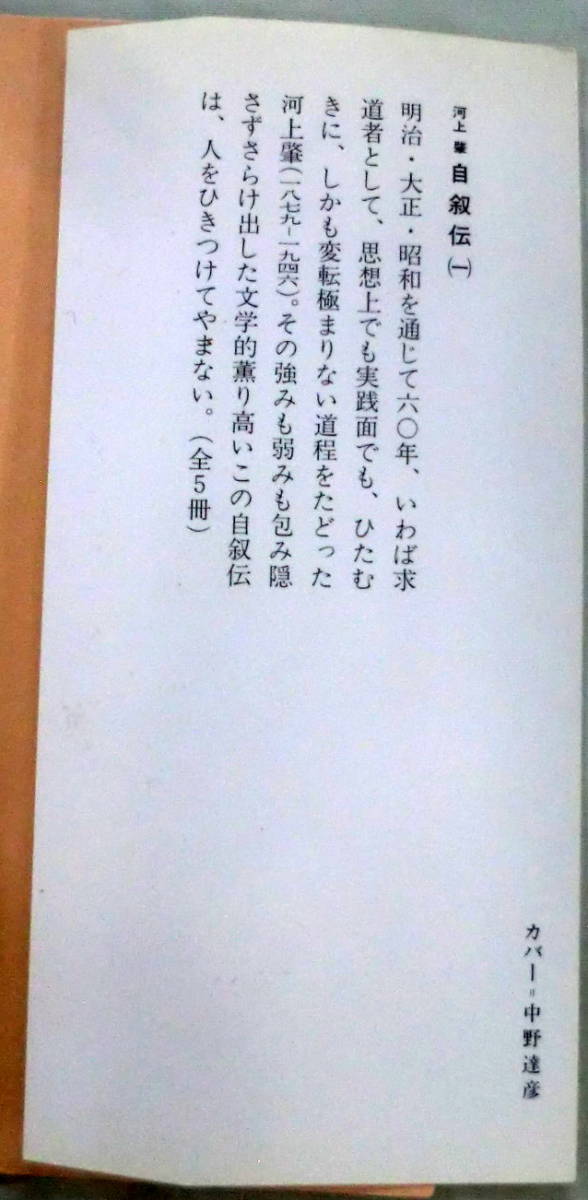 河上肇 自叙伝㈠
明治・大正・昭和を通じて六〇年、いわば求
道者として、思想上でも実践面でも、ひたむ
きに、しかも変転極まりない道程をたどった
河上肇(一八七九－一九四六)。その強みも弱みも包み隠
さずさらけ出した文学的薫り高いこの自叙伝
は、人をひきつけてやまない。(全5冊)
カバー＝中野達彦